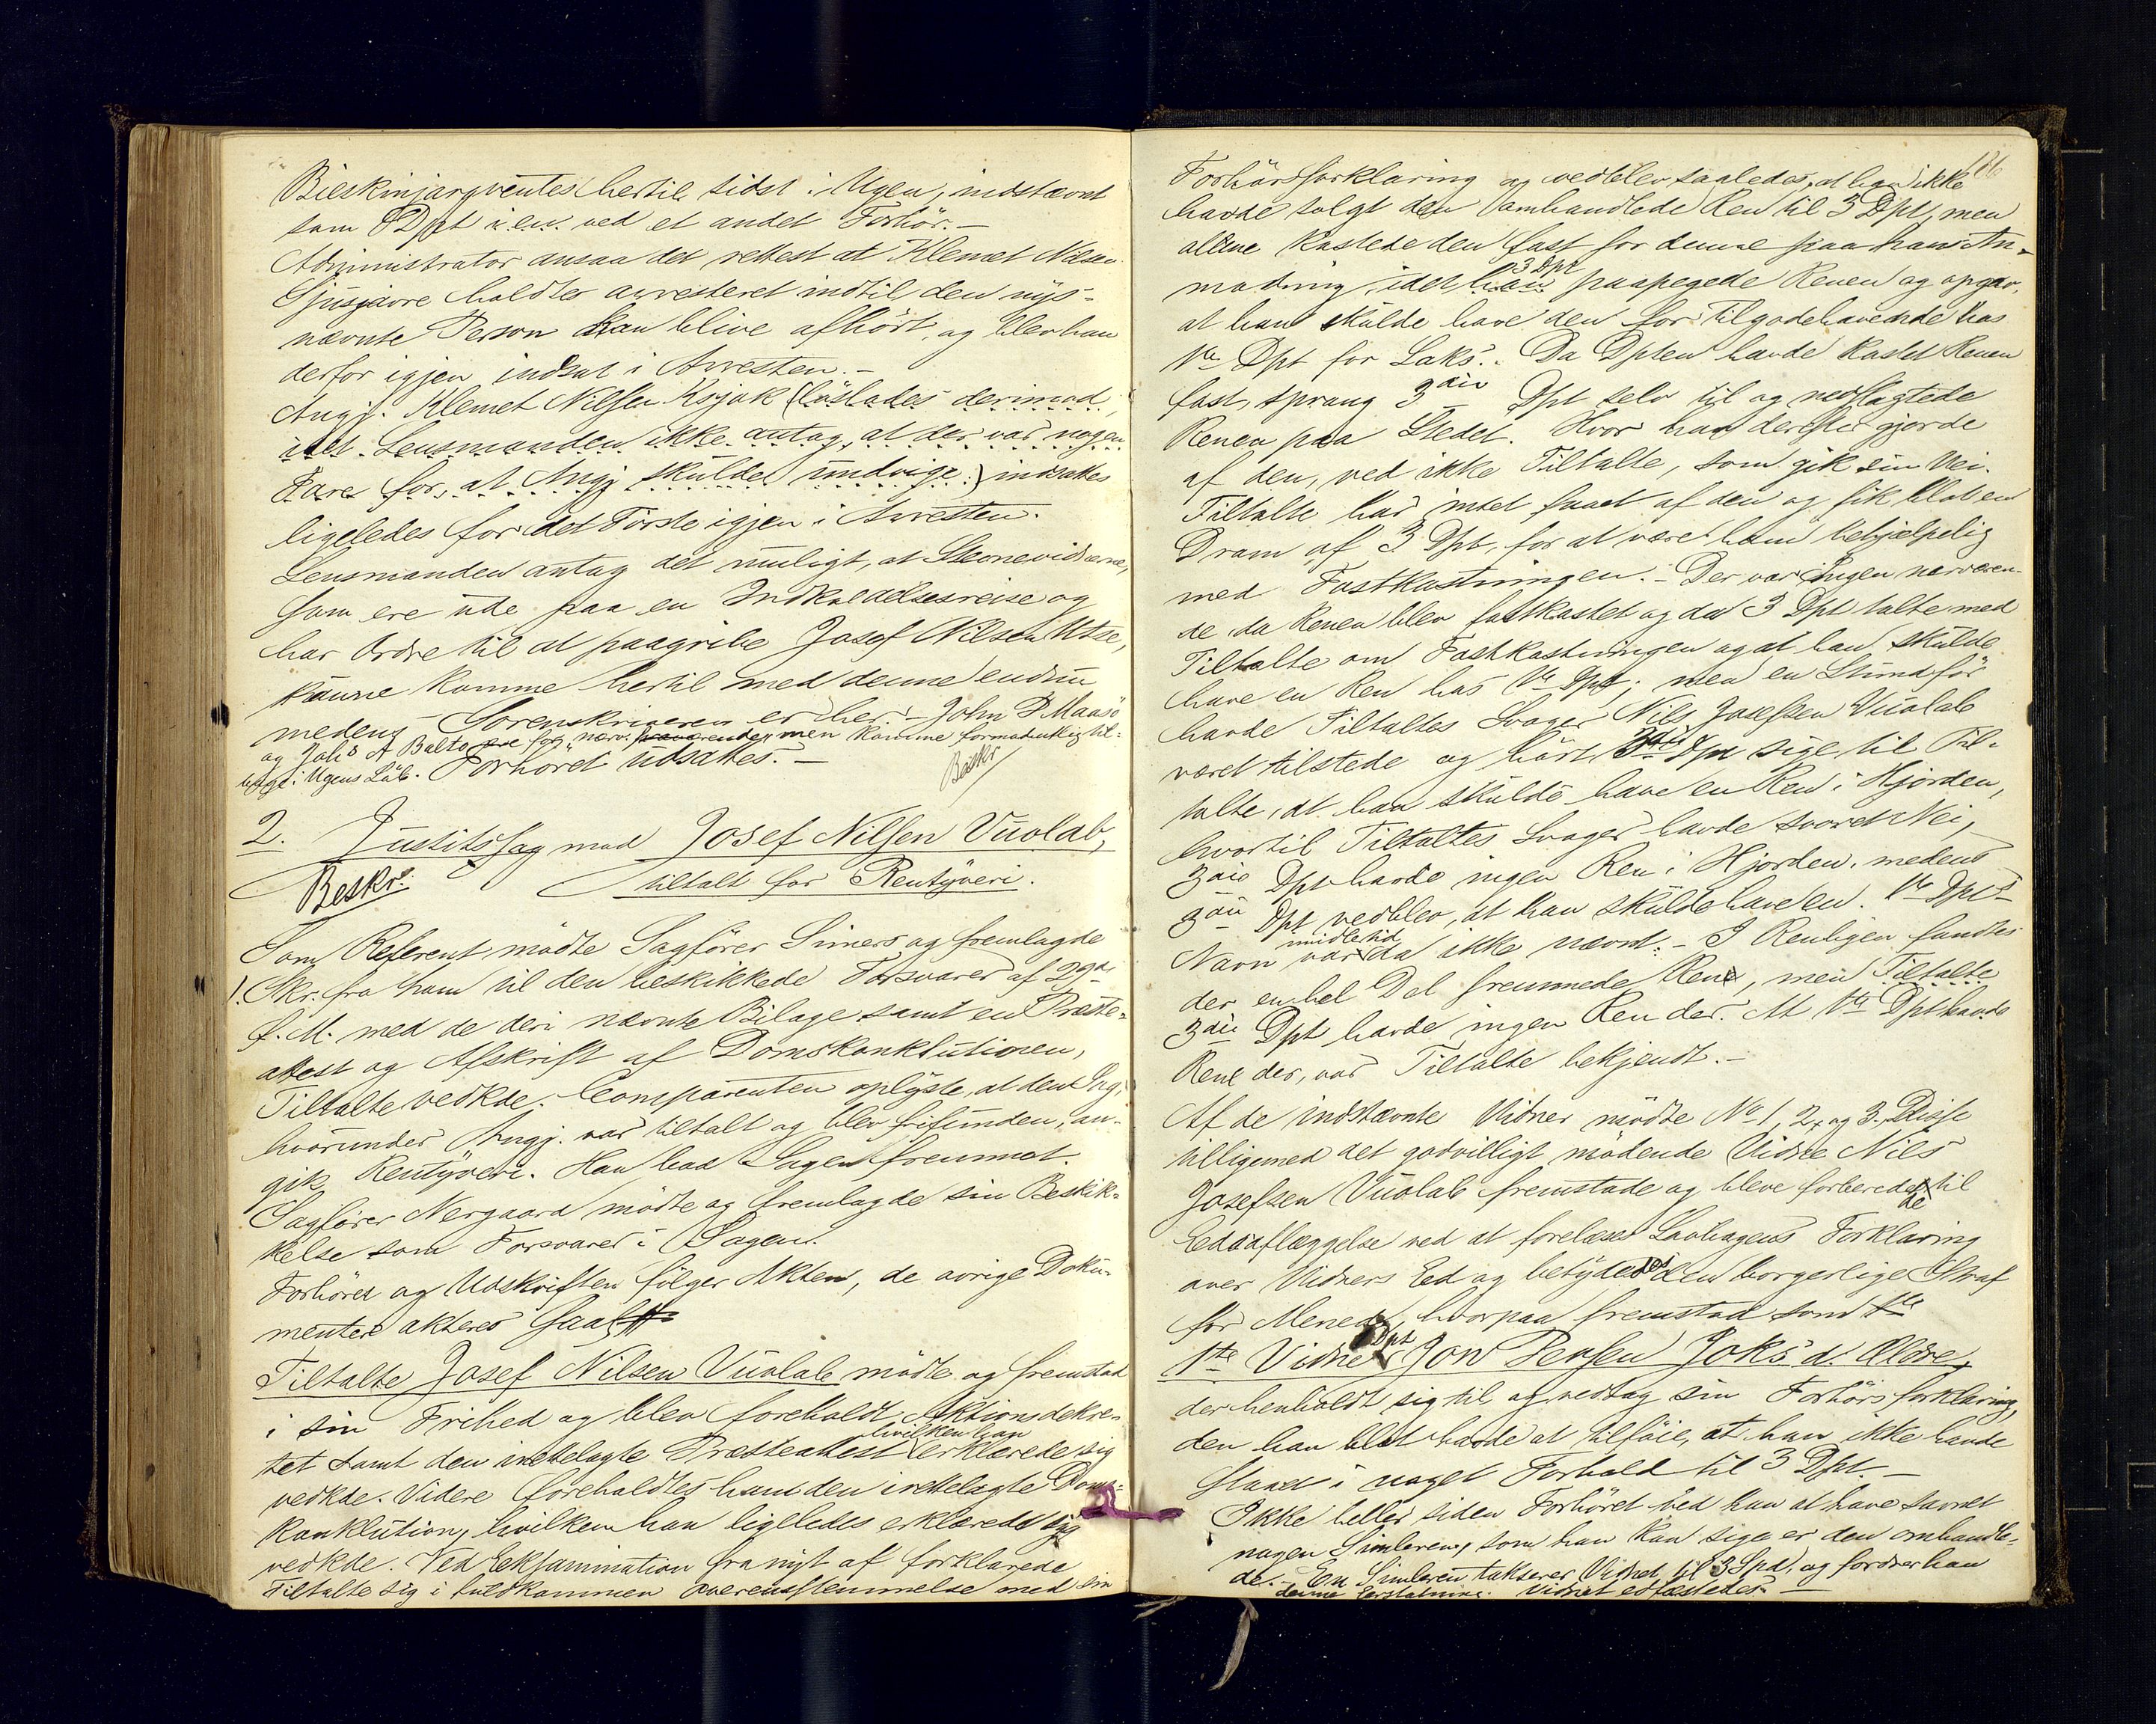 Bieskinjargventes hertil sidst i Ugen, indstævnt
som 8 Dpt i en ved et andet Forhör.-
Administrator ansaa det rettest at Klemet Nilsen
holdtes arresteret indtil den nys-
nævnte Person kan blive afhört, og blev han
derfor igjen indsat i Arresten.-
Angj. Klemet Nilsen (löslades derimod,
idet Lensmanden ikke antog, at der var nogen
Fare for, at Angj skulde undvige.) indsattes
ligeledes for det Förste igjen i Arresten.
Lensmanden antog det muligt, at Stevnevidnerne,
som ere ude paa en Indkaldelsesreise og
har Ordre til at paagribe Josef Nilsen Utse,
kunne komme hertil med denne endnu
medens Sorenskriveren er her.- John P Maasö
og Johs A Balto ere for nærv. fraværende, men komme formodentlig til-
bage i Ugens Löb. Forhöret udsattes.-
Beskr
2. Justitssag mod Josef Nilsen Vuolab,
Beskr. tiltalt for Rentyveri.
Som Referent mödte Sagförer Simers og fremlagde
1. Skr. fra ham til den beskikkede Forsvarer af 29de
f. M. med de deri nævnte Bilage samt en Præste-
attest og Afskrift af Domskonklutionen,
Tiltalte vedkde. Comparenten oplyste, at den Sag,
hvorunder Angj. var tiltalt og blev frifunden, an-
gik Rentyveri. Han bad Sagen fremmet.
Sagförer Nergaard mödte og fremlagde sin Beskik-
kelse som Forsvarer i Sagen.
Forhöret og Udskriften fölger Akten, de övrige Doku-
menter akteres saal.
Tiltalte Josef Nilsen Vuolab mödte og fremstod
i sin Frihed og blev foreholdt Aktionsdekre-
tet samt den irettelagte Præsteattest hvilken han erklærede sig
vedkde. Videre foreholdtes ham den irettelagte Doms-
konklution, hvilken han ligeledes erklærede sig
vedkde. Ved Eeksamination fra nyt af forklarede
Tiltalte sig i fuldkommen Overensstemmelse med sin
186
Forhörsforklaring og vedblev saaledes, at han ikke
havde solgt den omhandlede Ren til 3 Dpt, men
allene kastede den fast for denne paa hans An-
modning, idet han 3 Dpt paapegede Renen og opgav,
at han skulde have den for Tilgodehavende hos
1ste Dpt for Laks. Da Dpten havde kastet Renen
fast, sprang 3die Dpt selv til og nedslagtede
Renen paa Stedet. Hvor han derefter gjorde
af den, ved ikke Tiltalte, som gik sin Vei.
Tiltalte har intet faaet af den og fik blot en
Dram af 3 Dpt, for at være ham behjælpelig
med Fastkastningen.- Der var Ingen nærværen-
de da Renen blev fastkastet og da 3 Dpt talte med
Tiltalte om Fastkastningen og at han skulde
have en Ren hos 1ste Dpt; men en Stund för
havde Tiltaltes Svoger Nils Josefsen Vuolab
været tilstede og hört 3die Dpt sige til Til-
talte, at han skulde have en Ren i Hjorden,
hvortil Tiltaltes Svoger havde svoret Nei,
3die Dpt havde ingen Ren i Hjorden, medens
3die Dpt vedblev, at han skulde have en. 1ste Dpts
Navn var imidletid da ikke nævnt.- I Renhjen fandtes
der en hel Del fremmede Rene, men Tiltalte
3die Dpt havde ingen Ren der. At 1ste Dpt havde
Rene der, var Tiltalte bekjendt.-
Af de indstævnte Vidner mödte No 1, 2, og 3. Disse
tilligemed det godvilligt mödende Vidne Nils
Josefsen Vuolab fremstode og bleve forberedede til
Eedsaflæggelse ved at forelæses Lovbogens Forklaring
over Vidners Eed og betydedes den borgerlige Straf
for Mened, hvorpaa fremstod som 1ste
1ste Vidne Dpt Jon Persen Joks d. Ældre,
der henholdt sig til og vedtog sin Forhörsforklaring,
den han blot havde at tilföie, at han ikke havde
staaet i noget Forhold til 3 Dpt.-
Ikke heller siden Forhöret ved han at have savnet
nogen Simleren, som han kan sige er den omhandle-
de. En Simleren takserer Vidnet til 3 Spd. og fordrer han
denne Erstatning. Vidnet edfæstedes.-